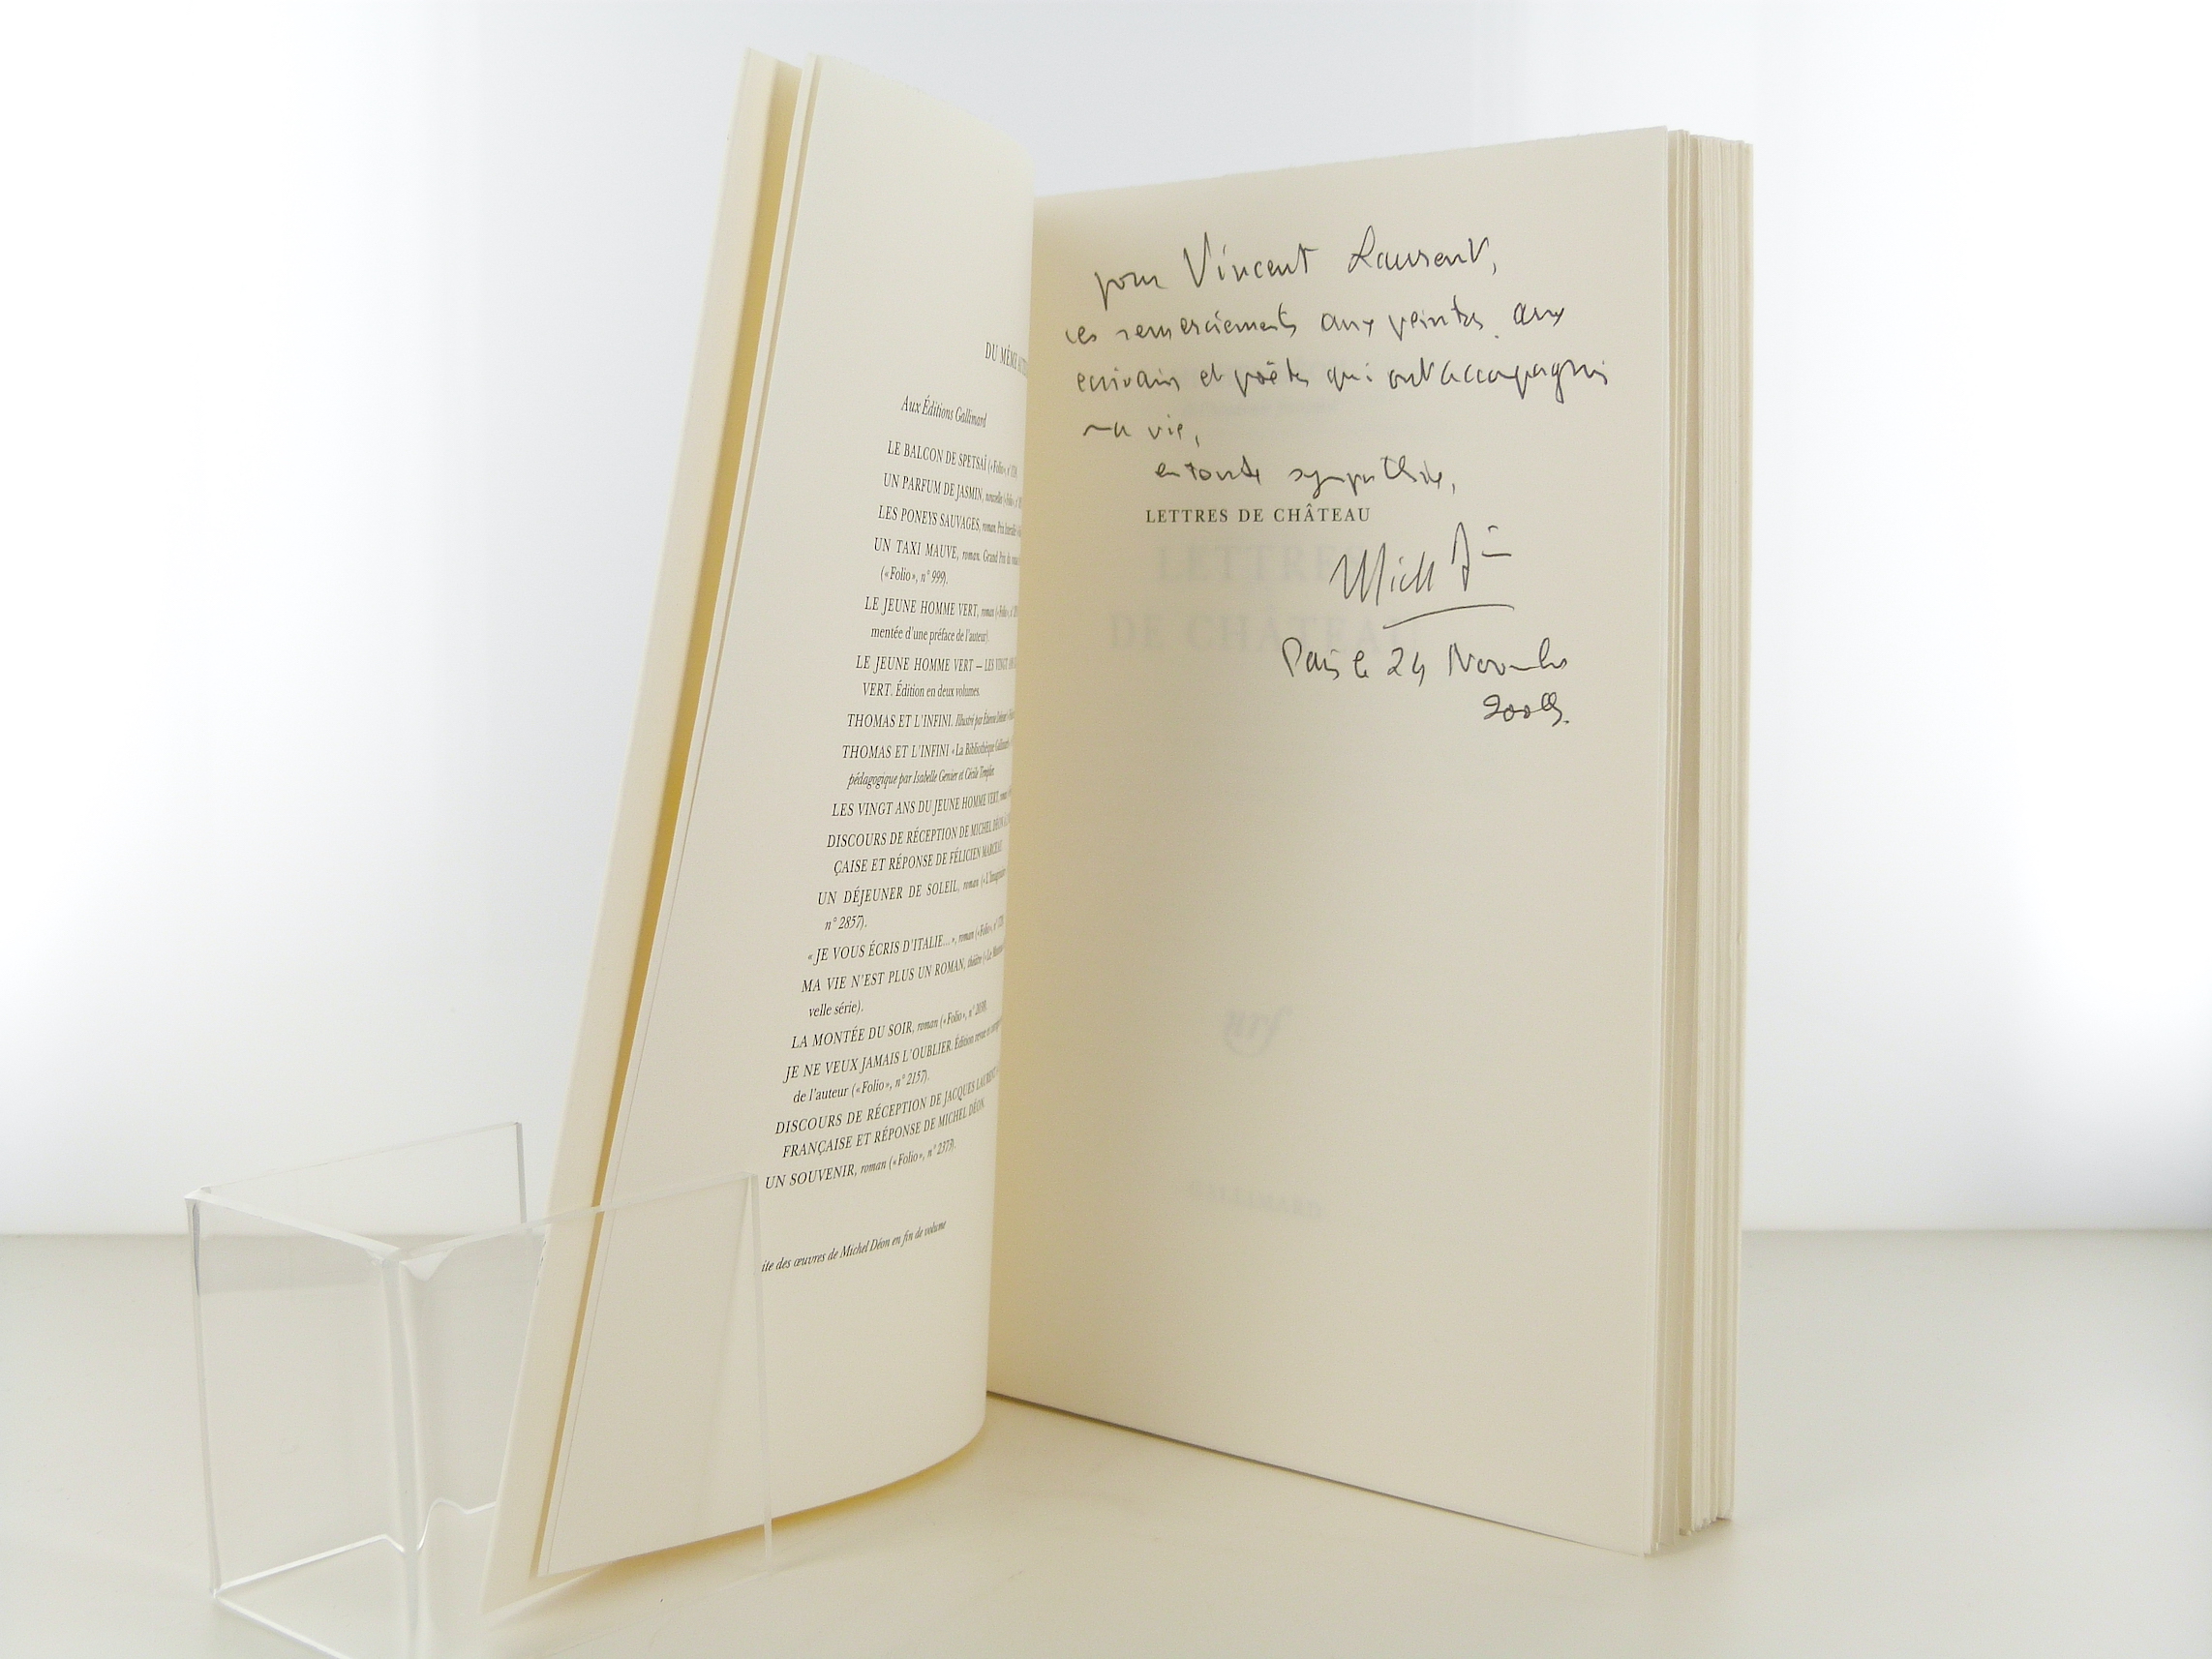 DU MÊME
Aux Éditions Gallimard
LE BALCON DE SPETSAÏ («Folio», n°
UN PARFUM DE JASMIN, nouvelles
LES PONEYS SAUVAGES, roman. Prix
UN TAXI MAUVE, roman. Grand Prix du
(«Folio», n° 999).
LE JEUNE HOMME VERT, roman
mentée d'une préface de l'auteur).
LE JEUNE HOMME VERT – LES VINGT
VERT. Édition en deux volumes.
THOMAS ET L'INFINI. Illustré par Étienne
THOMAS ET L'INFINI «La Bibliothèque
pédagogique par Isabelle Genier et Cécile
LES VINGT ANS DU JEUNE HOMME VERT,
DISCOURS DE RÉCEPTION DE MICHEL DÉON
ÇAISE ET RÉPONSE DE FÉLICIEN MARCEAU.
UN DÉJEUNER DE SOLEIL, roman
n° 2857).
«JE VOUS ÉCRIS D'ITALIE...», roman («Folio», n°
MA VIE N'EST PLUS UN ROMAN, théâtre
velle série).
LA MONTÉE DU SOIR, roman («Folio», n°
JE NE VEUX JAMAIS L'OUBLIER. Édition revue
de l'auteur («Folio», n° 2157).
DISCOURS DE RÉCEPTION DE JACQUES LAURENT
FRANÇAISE ET RÉPONSE DE MICHEL DÉON.
UN SOUVENIR, roman («Folio», n° 2373).
ite des œuvres de Michel Déon en fin de volume
pour Vincent Laurent,
ces remerciements aux peintres, aux
ecrivains et poëtes qui ont accompagnés
ma vie,
en toute sympathie,
LETTRES DE CHÂTEAU
LETTRES
DE CHÂTEAU
Paris le 24 Novembre
2009.
nrf
GALLIMARD